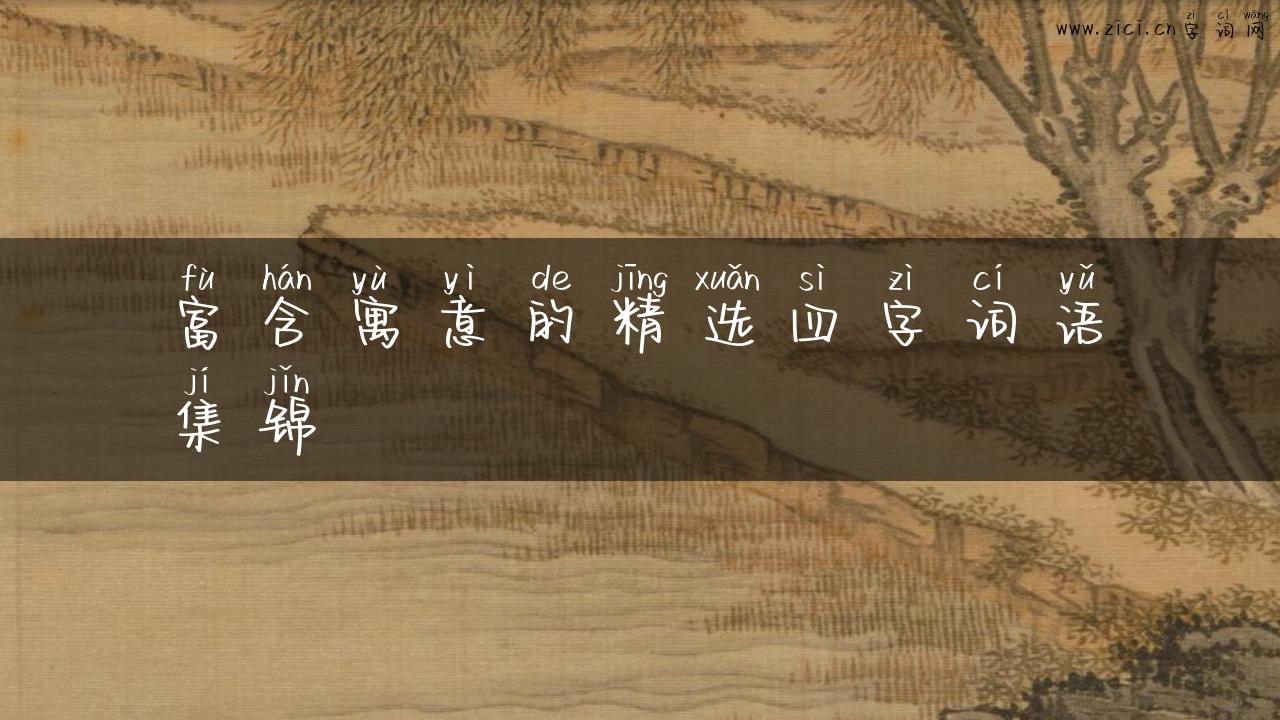 zì cí wǎng
www.zici.cn字词网
fù hán yù yì de jīng xuǎn sì zì cí yǔ
富含寓意的精选四字词语
jí jǐn
集锦